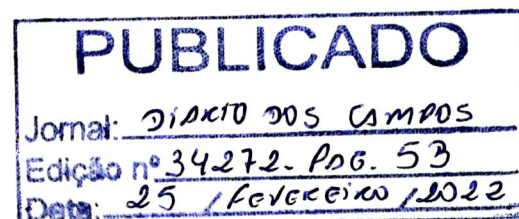 PUBLICADO
Jornal: DIARIO DOS CAMPOS
Edição nº 34272- PAG. 53
Data: 25 / FEVEREIRO / 2022